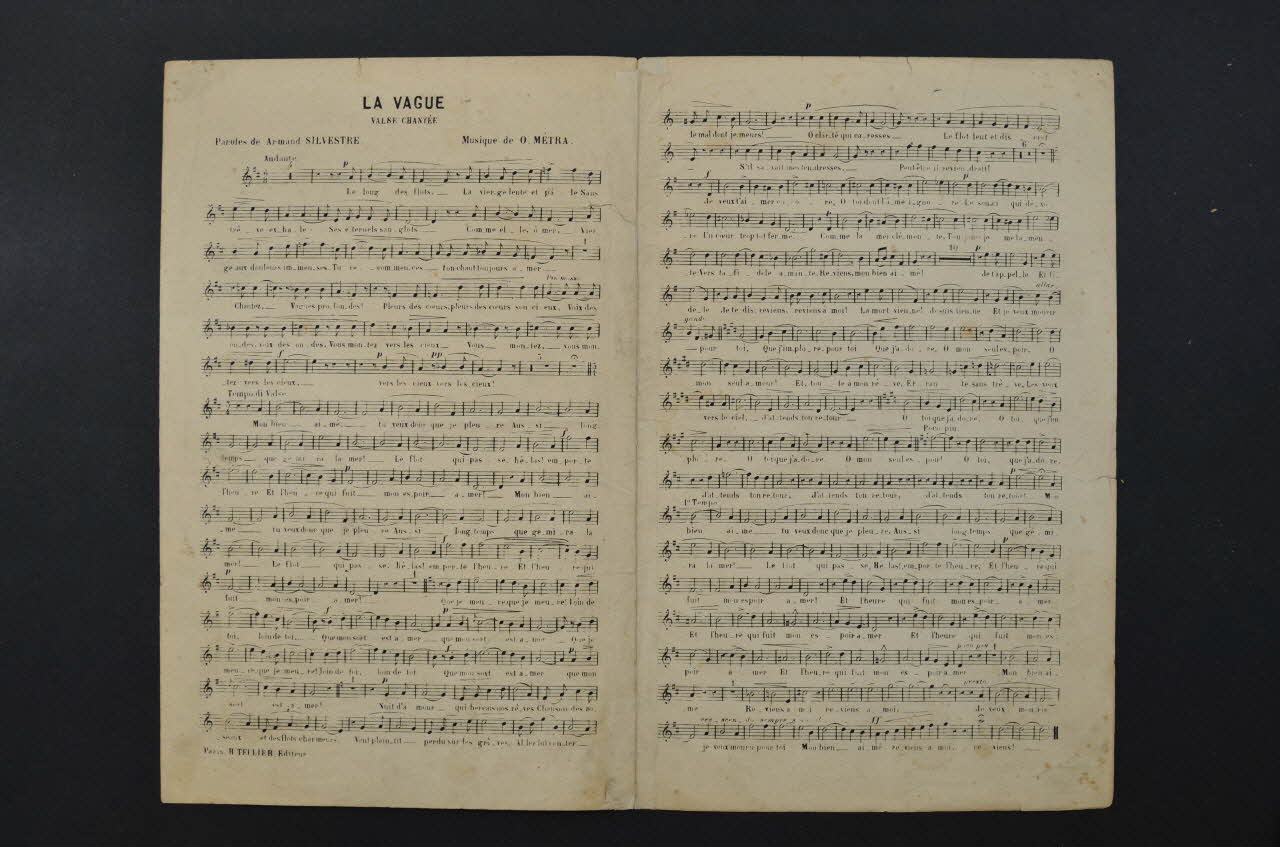 LA VAGUE
VALSE CHANTÉE
Paroles de Armand SILVESTRE Musique de O. MÉTRA.
Andante
Le long des flots, La vier_ge lente et pâ_le Sans
trê_ve ex_ha_le Ses é_ternels san_glots Com_me el_le, ô mer_
ge aux douleurs im_men_ses, Tu re_com_men_ces ton chant toujours a_mer
Chantez, Voix des pro_fon_des! Pleurs des cœurs, pleurs des cœurs sou_ci_eux, Voix des
on_des, voix des on_des, Vous mon_tez vers les cieux Vous mon_tez, vous mon_
_tez vers les cieux, vers les cieux vers les cieux!
Tempo di Valse
Mon bien ai_mé tu veux donc que je pleu_re Aus_si long
temps que gé_mi_ra la mer! Le flot qui pas_se, hé_las! em_por_te
l'heu_re Et l'heu_re qui fuit mon es_poir a_mer! Mon bien ai_
_mé tu veux donc que je pleu_re Aus_si long_temps que gé_mi_ra la
mer! Le flot qui pas_se, hé_las! em_por_te l'heu_re Et l'heu_re qui
fuit mon es_poir a_mer! Que je meu_re que je meu_re! loin de
toi, loin de toi, Que mon sort est a_mer que mon sort est a_mer Que je
meu_re que je meu_re! loin de toi, loin de toi Que mon sort est a_mer que mon
sort est a_mer! Nuit d'a_mour qui berçais nos rê_ves Chanson des oi_
seaux et des flots charmeurs, Vent plain_tif perdu sur les grè_ves, Al_lez lui con_ter
Paris, H. TELLIER, Editeur
le mal dont je meurs! O clar_té qui ca_resses Le flot lent et dis_cret
S'il sa_vait mes ten_dresses, Peut-être il revien_drait!
Je veux t'ai_mer en_co_re, O toi dont l'â_me i_gno_re Le souci qui dé_vo_
re Un cœur trop tôt fer_mé. Com_me la mer clé_men_te, Tou_te je me lamen_
te Vers ta fi_dèle a_man_te, Re_viens, mon bien ai_mé! Je t'ap_pel_le Et fi_
dè_le Je te dis: reviens, reviens à moi! La mort vien_ne! Et je veux mourir
pour toi, Que j'im_plo_re, pour toi Que j'a_do_re, O mon seul es_poir, O
mon seul a_mour! Et, tou_te à mon rê_ve, Et tan_te sans trê_ve, Les yeux
vers le ciel, J'at_tends ton re_tour O toi que j'a_do_re, O toi, que j'im_
Poco piu
plo_re, O toi que j'a_do_re O mon seul es_poir! O toi, que j'a_do_re,
J'at_tends ton re_tour, J'at_tends ton re_tour, J'at_tends ton re_tour! Mon
1º Tempo
bien ai_mé tu veux donc que je pleu_re, Aus_si long_temps que gé_mi_
ra la mer! Le flot qui pas_se, Hé_las! em_por_te l'heu_re, Et l'heu_re qui
fuit mon espoir a_mer! Et l'heure qui fuit mon es_poir a_mer
Et l'heu_re qui fuit mon es_poir a_mer Et l'heure qui fuit mon es_
poir a_mer Et l'heu_re qui fuit mon es_poir a_mer Mon bien ai_
mé Re_viens à moi re_viens à moi: Je veux mou_rir
je veux mourir pour toi Mon bien ai_mé re_viens à moi, re_viens!